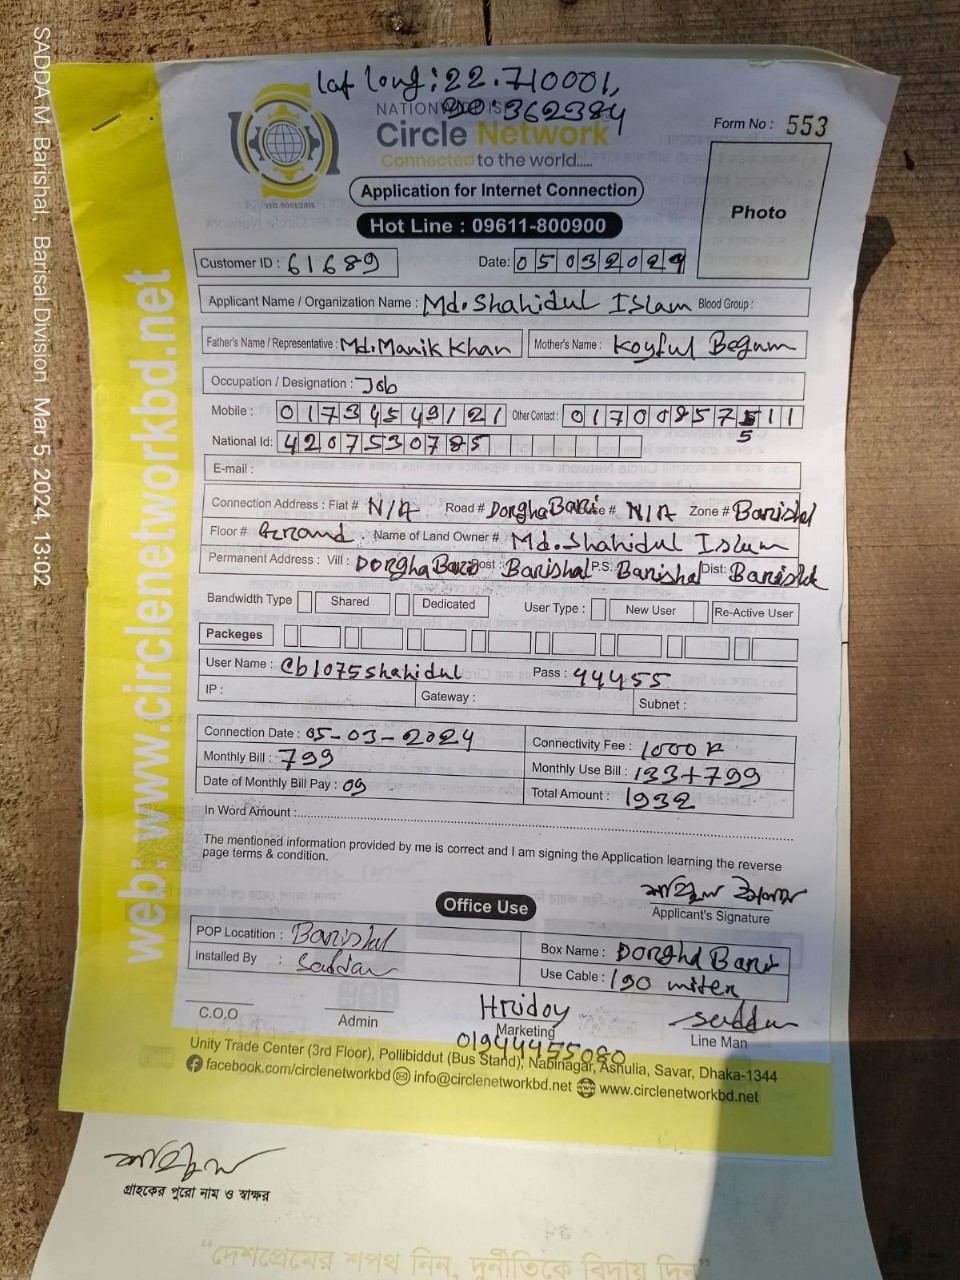 lat long: 22.710001,
90.362384
Circle Network
Connected to the world.....
ISO 9001:2015
Form No : 553
Photo
Application for Internet Connection
Hot Line : 09611-800900
Customer ID : 61689 Date: 05032024
Applicant Name / Organization Name : Md. Shahidul Islam Blood Group :
Father's Name / Representative : Md. Manik Khan Mother's Name : Koyful Begum
Occupation / Designation : Job
Mobile : 01734549121 Other Contact :
National Id: 4207530785
E-mail :
Connection Address : Flat # N/A Road # Dorgha Bari # N/A Zone # Barishal
Floor # Ground Name of Land Owner # Md. Shahidul Islam
Permanent Address : Vill : Dorgha Bari Post : Barishal P.S: Barishal Dist: Barishal
Bandwidth Type Shared Dedicated User Type : New User Re-Active User
Packeges
User Name : cb1075shahidul Pass : 44455
IP : Gateway : Subnet :
Connection Date : 05-03-2024 Connectivity Fee : 1000
Monthly Bill : 799 Monthly Use Bill : 133+799
Date of Monthly Bill Pay : 09 Total Amount : 1932
In Word Amount :
The mentioned information provided by me is correct and I am signing the Application learning the reverse
page terms & condition.
Applicant's Signature
Office Use
POP Locatition : Barishal Box Name : Dorgha Bari
Installed By : Saddam Use Cable : 190 miter
C.O.O Admin Hridoy Marketing Saddam Line Man
01944455080
Unity Trade Center (3rd Floor), Pollibiddut (Bus Stand), Nabinagar, Ashulia, Savar, Dhaka-1344
facebook.com/circlenetworkbd info@circlenetworkbd.net www.circlenetworkbd.net
web: www.circlenetworkbd.net
গ্রাহকের পুরো নাম ও স্বাক্ষর
“দেশপ্রেমের শপথ নিন, দুর্নীতিকে বিদায় দিন”
SADDA M. Barishal. Barisal Division Mar 5, 2024, 13:02